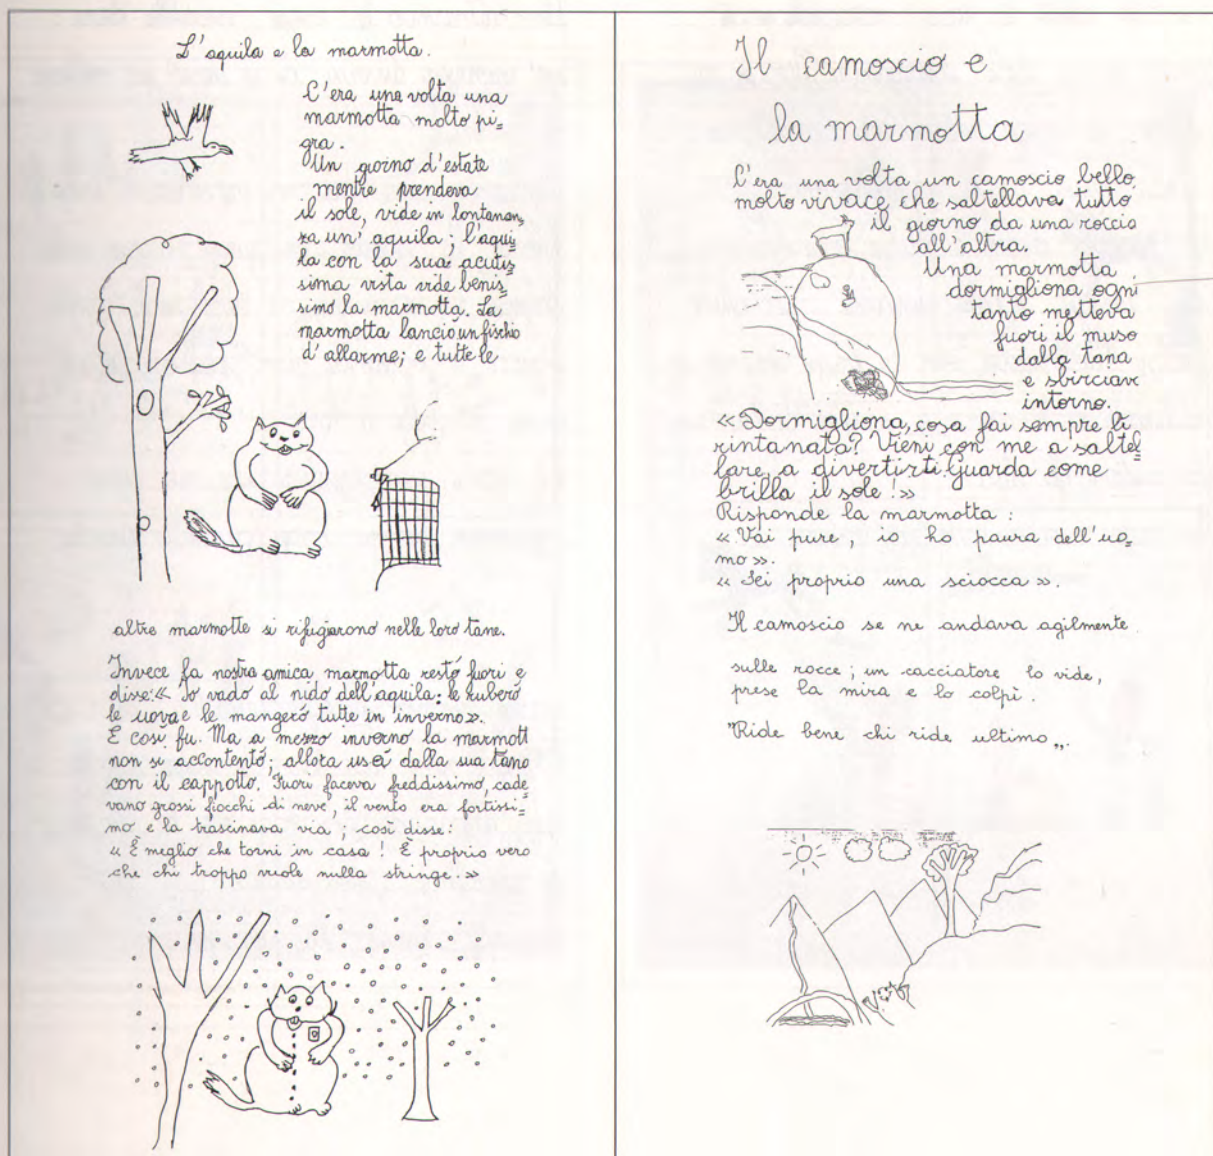 L'aquila e la marmotta.
C'era una volta una
marmotta molto pi=
gra.
Un giorno d'estate
mentre prendeva
il sole, vide in lontanan=
za un'aquila; l'aqui=
la con la sua acutis=
sima vista vide benis=
simo la marmotta. La
marmotta lanciò un fischio
d'allarme; e tutte le
altre marmotte si rifugiarono nelle loro tane.
Invece la nostra amica marmotta restò fuori e
disse: « Io vado al nido dell'aquila: le ruberò
le uova e le mangerò tutte in inverno ».
E così fu. Ma a mezzo inverno la marmott
non si accontentò; allora uscì dalla sua tana
con il cappotto. Fuori faceva freddissimo, cade
vano grossi fiocchi di neve, il vento era fortissi=
mo e la trascinava via; così disse:
« È meglio che torni in casa ! È proprio vero
che chi troppo vuole nulla stringe. »
Il camoscio e
la marmotta
C'era una volta un camoscio bello,
molto vivace che saltellava tutto
il giorno da una roccia
all'altra.
Una marmotta
dormigliona ogni
tanto metteva
fuori il muso
dalla tana
e sbirciav
intorno.
« Dormigliona, cosa fai sempre lì
rintanata? Vieni con me a saltel=
lare, a divertirti Guarda come
brilla il sole ! »
Risponde la marmotta :
« Vai pure, io ho paura dell'uo=
mo ».
« Sei proprio una sciocca ».
Il camoscio se ne andava agilmente
sulle rocce; un cacciatore lo vide,
prese la mira e lo colpì.
"Ride bene chi ride ultimo„.